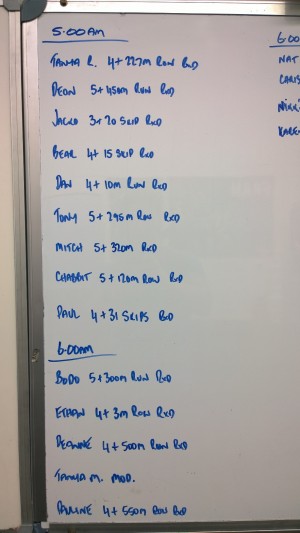 5:00AM
TANYA R. 4+227M ROW RXD
DEON 5+450M RUN RXD
JACKO 3+20 SKIP RXD
BEAR 4+15 SKIP RXD
DAN 4+10M RUN RXD
TONY 5+295M ROW RXD
MITCH 5+320M RXD
CHABBIT 5+120M ROW RXD
PAUL 4+31 SKIPS RXD
6:00AM
BODO 5+300M RUN RXD
ETHAN 4+3M ROW RXD
DEANNE 4+500M ROW RXD
TANYA M. MOD.
PAULINE 4+550M ROW RXD
6:00
NAT
CARIS
KARE